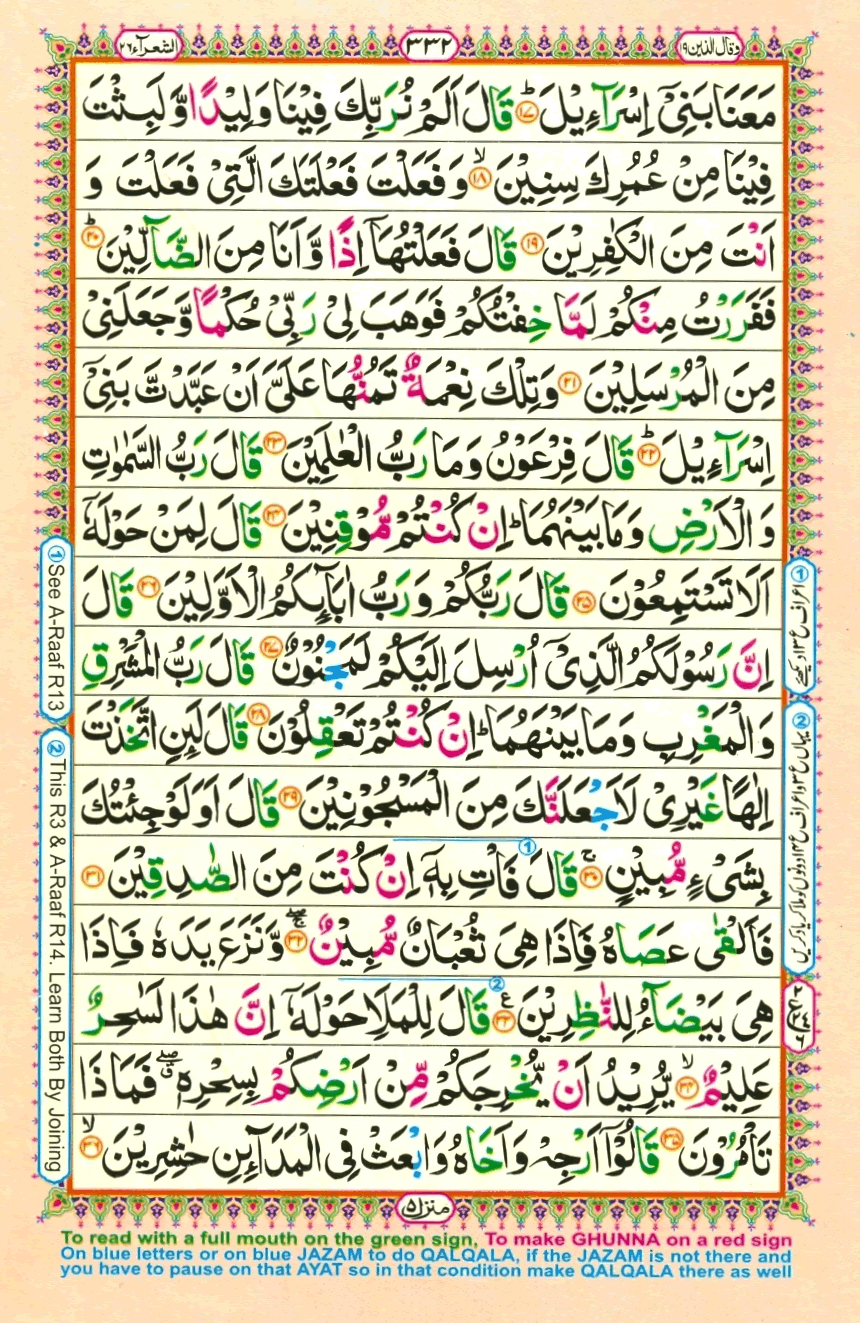 وقال الذین ۱۹
۳۳۲
الشعرآء ۲۶
مَعَنَا بَنِیْۤ اِسْرَآءِیْلَ ؕ۱۷ قَالَ اَلَمْ نُرَبِّكَ فِیْنَا وَلِیْدًا وَّ لَبِثْتَ
فِیْنَا مِنْ عُمُرِكَ سِنِیْنَ ۙ۱۸ وَ فَعَلْتَ فَعْلَتَكَ الَّتِیْ فَعَلْتَ وَ
اَنْتَ مِنَ الْكٰفِرِیْنَ ۱۹ قَالَ فَعَلْتُهَاۤ اِذًا وَّ اَنَا مِنَ الضَّآلِّیْنَ ؕ۲۰
فَفَرَرْتُ مِنْكُمْ لَمَّا خِفْتُكُمْ فَوَهَبَ لِیْ رَبِّیْ حُكْمًا وَّ جَعَلَنِیْ
مِنَ الْمُرْسَلِیْنَ ۲۱ وَ تِلْكَ نِعْمَةٌ تَمُنُّهَا عَلَیَّ اَنْ عَبَّدْتَّ بَنِیْۤ
اِسْرَآءِیْلَ ؕ۲۲ قَالَ فِرْعَوْنُ وَ مَا رَبُّ الْعٰلَمِیْنَ ۲۳ قَالَ رَبُّ السَّمٰوٰتِ
وَ الْاَرْضِ وَ مَا بَیْنَهُمَا ؕ اِنْ كُنْتُمْ مُّوْقِنِیْنَ ۲۴ قَالَ لِمَنْ حَوْلَهٗۤ
اَلَا تَسْتَمِعُوْنَ ۲۵ قَالَ رَبُّكُمْ وَ رَبُّ اٰبَآىِٕكُمُ الْاَوَّلِیْنَ ۲۶ قَالَ
اِنَّ رَسُوْلَكُمُ الَّذِیْۤ اُرْسِلَ اِلَیْكُمْ لَمَجْنُوْنٌ ۲۷ قَالَ رَبُّ الْمَشْرِقِ
وَ الْمَغْرِبِ وَ مَا بَیْنَهُمَا ؕ اِنْ كُنْتُمْ تَعْقِلُوْنَ ۲۸ قَالَ لَىِٕنِ اتَّخَذْتَ
اِلٰهًا غَیْرِیْ لَاَجْعَلَنَّكَ مِنَ الْمَسْجُوْنِیْنَ ۲۹ قَالَ اَوَ لَوْ جِئْتُكَ
بِشَیْءٍ مُّبِیْنٍ ۚ۳۰ قَالَ فَاْتِ بِهٖۤ اِنْ كُنْتَ مِنَ الصّٰدِقِیْنَ ۳۱
فَاَلْقٰی عَصَاهُ فَاِذَا هِیَ ثُعْبَانٌ مُّبِیْنٌ ۚۖ۳۲ وَّ نَزَعَ یَدَهٗ فَاِذَا
هِیَ بَیْضَآءُ لِلنّٰظِرِیْنَ ۳۳ ع قَالَ لِلْمَلَاِ حَوْلَهٗۤ اِنَّ هٰذَا لَسٰحِرٌ
عَلِیْمٌ ۙ۳۴ یُّرِیْدُ اَنْ یُّخْرِجَكُمْ مِّنْ اَرْضِكُمْ بِسِحْرِهٖ ۖۗ فَمَا ذَا
تَاْمُرُوْنَ ۳۵ قَالُوْۤا اَرْجِهْ وَ اَخَاهُ وَ ابْعَثْ فِی الْمَدَآىِٕنِ حٰشِرِیْنَ ۙ۳۶
① See A-Raaf R13
② This R3 & A-Raaf R14. Learn Both By Joining
① اعراف ع ۱۳ دیکھئے
② یہاں ع ۳ و اعراف ع ۱۴ دونوں کو ملا کر یاد کریں
منزل ۵
To read with a full mouth on the green sign, To make GHUNNA on a red sign
On blue letters or on blue JAZAM to do QALQALA, if the JAZAM is not there and
you have to pause on that AYAT so in that condition make QALQALA there as well